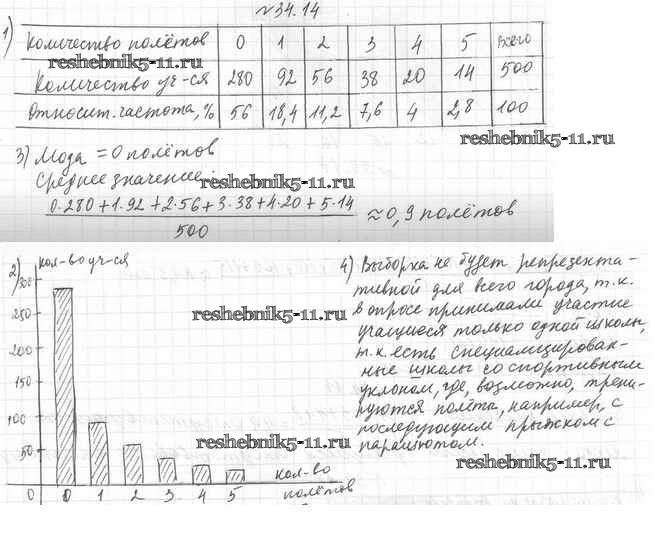 №34.14
1)
Количество полётов 0 1 2 3 4 5 Всего
reshebnik5-11.ru
Количество уч-ся 280 92 56 38 20 14 500
Относит. частота, % 56 18,4 11,2 7,6 4 2,8 100
reshebnik5-11.ru
3) Мода = 0 полётов
Среднее значение:
reshebnik5-11.ru
0·280+1·92+2·56+3·38+4·20+5·14
≈0,9 полётов
500
2) кол-во уч-ся
300
250
200
150
100
50
0
0 1 2 3 4 5
кол-во
полётов
reshebnik5-11.ru
reshebnik5-11.ru
4) Выборка не будет репрезента-
тивной для всего города, т.к.
в опросе принимали участие
учащиеся только одной школы,
т.к. есть специализирован-
ные школы со спортивным
уклоном, где, возможно, трени-
руются полёта, например, с
последующим прыжком с
парашютом.
reshebnik5-11.ru